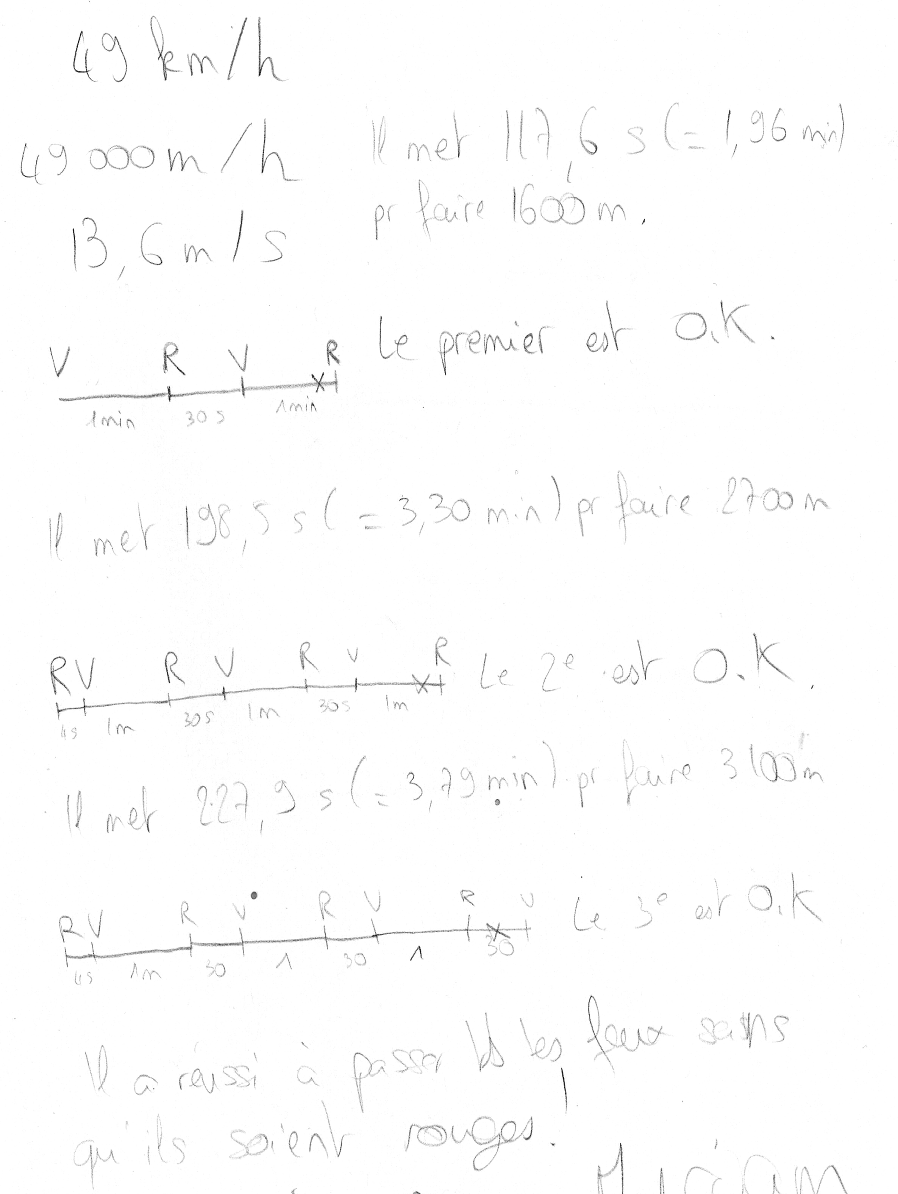 49 km/h
49 000 m/h
13,6 m/s
Il met 117,6 s (= 1,96 min)
pr faire 1600 m.
V R V R
1min 30 s 1min
Le premier est O.K.
Il met 198,5 s (= 3,30 min) pr faire 2700 m
R V R V R V R
4s 1m 30s 1m 30s 1m
Le 2e est O.K.
Il met 227,9 s (= 3,79 min) pr faire 3100 m
R V R V R V R V
4s 1m 30 1 30 1 30
Le 3e est O.K
Il a réussi à passer ts les feux sans
qu'ils soient rouges!